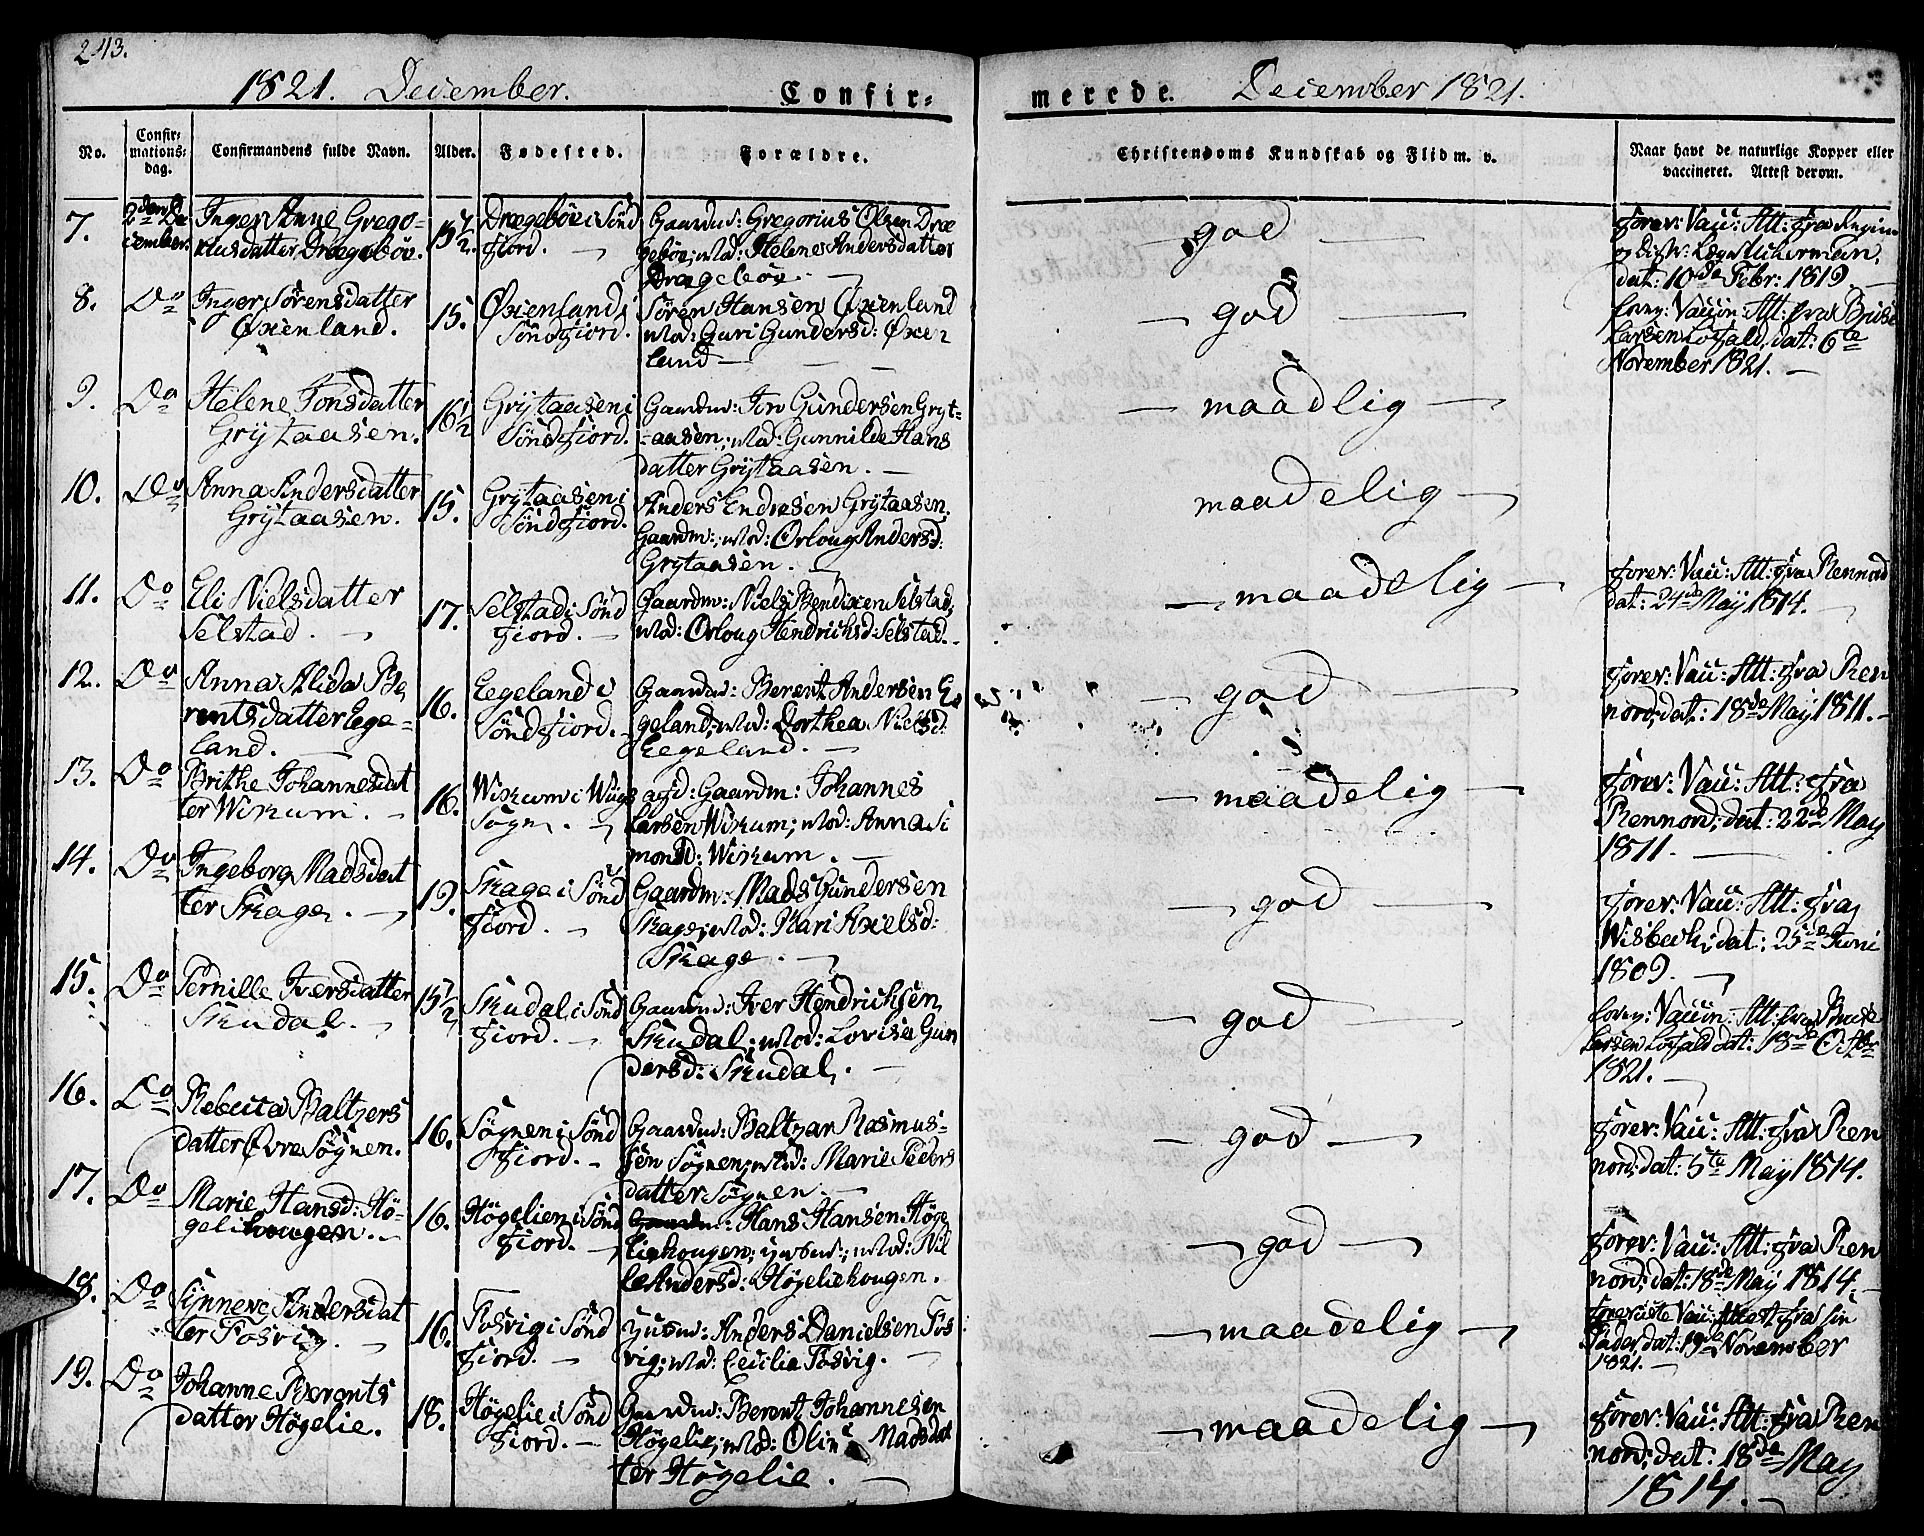 243.
1821. December. Confir=
merede. December 1821.
No.
Confir=
mations=
dag.
Confirmandens fulde Navn.
Alder.
Fødested.
Forældre.
Christendoms Kundskab og Flid m. v.
Naar havt de naturlige Kopper eller
vaccineret. Attest derom.
7.
2den De
cember.
Inger Anne Grego-
riusdatter Drægebøe.
15 1/2
Drægebøe i Sönd
fiord.
Gaardm: Gregorius Olsen Dræ
gebøe; Mod: Helene Andersdatter
Drægebøe.
— god —
forev: Vacc: Att: fra Regim
og Distr: Læge Uckerman,
dat: 10de Febr: 1819.
8.
Do
Inger Sörensdatter
Øxenland.
15.
Øxenland i
Söndfjord.
Sören Hansen Øxenland
Mod: Guri Gundersd: Øxen
land —
— god —
forev: Vaccin: Att: fra
Larsen Lofald, dat: 6te
November 1821. —
9.
Do
Helene Jonsdatter
Grÿtaasen.
16 1/2
Grÿtaasen i
Söndfjord.
Gaardm: Jon Gundersen Grÿt-
-aasen; Mod: Gunnilde Hans
datter Grÿtaasen. —
— maadlig —
10.
Do
Anna Andersdatter
Grÿtaasen.
15.
Grÿtaasen i
Söndfjord.
Anders Endresen Grÿtaasen,
Gaardm:; Mod: Orloug Andersd:
Grÿtaasen.
maadelig —
11.
Do
Eli Nielsdatter
Selstad. —
17.
Selstad i Sönd
fiord. —
Gaardm: Niels Bendixen Selstad,
Mod: Orloug Hendrichsd: Selstad. -
— maadelig —
forev: Vacc: Att: fra Rennord
dat: 24de Maÿ 1814.
12.
Do
Anna Alida Be
rentsdatter Ege-
land.
16.
Eegeland i
Söndfjord.
Gaardm: Berent Andersen E
geland, Mod: Dorthea Nielsd:
Eegeland. —
— god —
forev: Vacc: Att: fra Ren
nord, dat: 18de Maÿ 1811. -
13.
Do
Brithe Johannesdat
ter Wixum. —
16.
Wixum i
Sogn. —
Gaardm: Johannes
Larsen Wixum; Mod: Anna Si
monsd: Wixum. —
— maadelig —
forev: Vacc: Att: fra
Rennord; dat: 22de May
1811. —
14.
Do
Ingeborg Madsdat
ter Skage. —
19.
Skage i Sönd
fiord. —
Gaardm: Mads Gundersen
Skage; Mod: Kari Axelsd:
Skage. —
— god —
forev: Vacc: Att: fra
Wisbech; dat: 25de Juni
1809. —
15.
Do
Pernille Iversdatter
Skudal. —
15 1/2
Skudal i Sönd
fiord. —
Gaardm: Iver Hendrichsen
Skudal; Mod: Lovise Gun
dersd: Skudal. —
— god —
forev: Vaccin: Att: fra
Larsen Lofald dat: 18de Octbr
1821. —
16.
Do
Rebecca Baltzers
datter Øvre Sögnen.
16.
Sögnen i Sönd
fiord. -
Gaardm: Baltzar Rasmus-
sen Sögnen; Mod: Marie Peders
datter Sögnen. —
— god —
forev: Vacc: Att: fra Ren
nord; dat: 5te May 1814.
17.
Do
Marie Hansd: Hö-
geliehougen. -
16.
Högelien i Sönd
fiord. —
Gaardm: Hans Hansen Höge
liehougen; Huusm:; Mod: Sil
le Andersd: Högeliehougen.
— god —
forev: Vacc: Att: fra Ren
nord; dat: 18de May 1814. -
18.
Do
Synneve Andersdat
ter Fosvig. —
16.
Fosvig i Sönd
fiord. —
Huusm: Anders Danielsen Fos
vig; Mod: Cecilia Fosvig. —
— maadelig —
foreviste Vacc: Attest fra sin
Fader, dat: 19de November
1821. —
19.
Do
Johanne Berents
datter Högelie.
18.
Högelie i Sönd
fiord. —
Gaardm: Berent Johannesen
Högelie; Mod: Oline Madsdat
ter Högelie. —
— maadelig —
forev: Vacc: Att: fra Ren
nord; dat: 18de May
1814. —